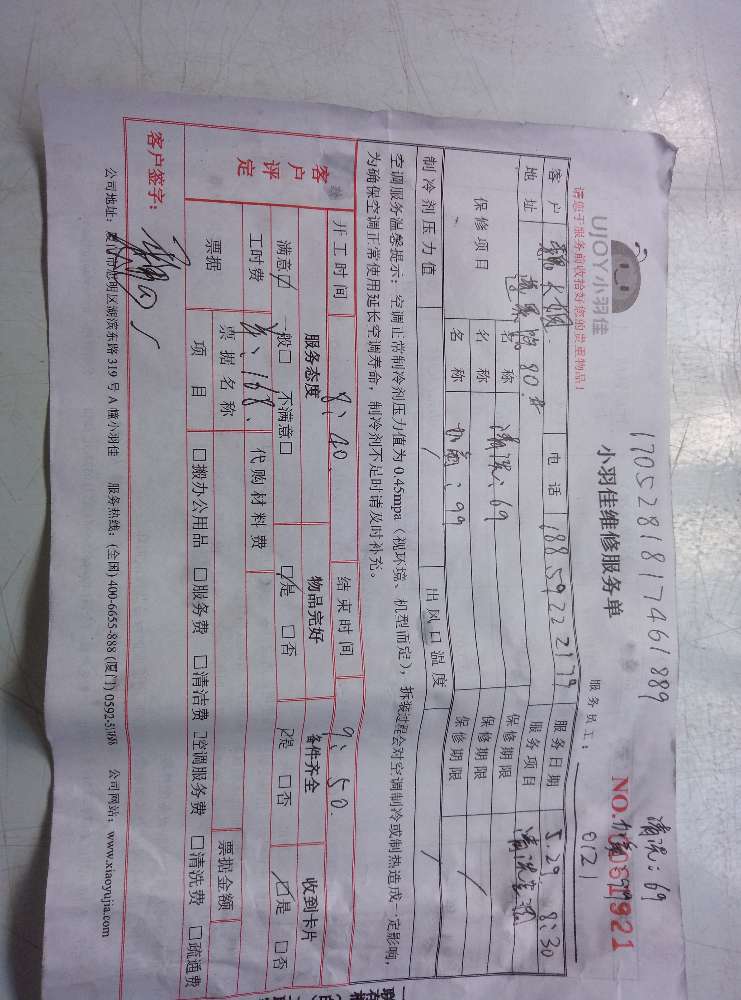 170528181746l889
清洗:69
UJOY小羽佳
小羽佳维修服务单
NO.0061921
请您于服务前收拾好您的贵重物品!
服务员工: 0121
客户 电话 18859222179 服务日期 5.29 8:30
地址 80# 服务项目 清洗空调
保修项目 名称 清洗:69 保修期限
名称 保修期限 /
名称 加氟:99 保修期限
制冷剂压力值 / 出风口温度 /
空调服务温馨提示:空调正常制冷剂压力值为0.45mpa(视环境、机型而定),拆装过程会对空调制冷或制热造成一定影响,
为确保空调正常使用延长空调寿命,制冷剂不足时请及时补充。
开工时间 8:40 结束时间 9:50
客户评定 服务态度 物品完好 备件齐全 收到卡片
满意☑ 一般□ 不满意□ ☑是 □否 ☑是 □否 ☑是 □否
工时费 ¥:168. 代购材料费
票据 票据名称 票据金额
项目 □搬办公用品 □服务费 □清洁费 □空调服务费 □清洗费 □疏通费
客户签字:
公司地址:厦门市思明区湖滨东路319号A幢小羽佳 服务热线:(全国)400-6655-888 (厦门)0592-5 公司网站:www.xiaoyujia.com